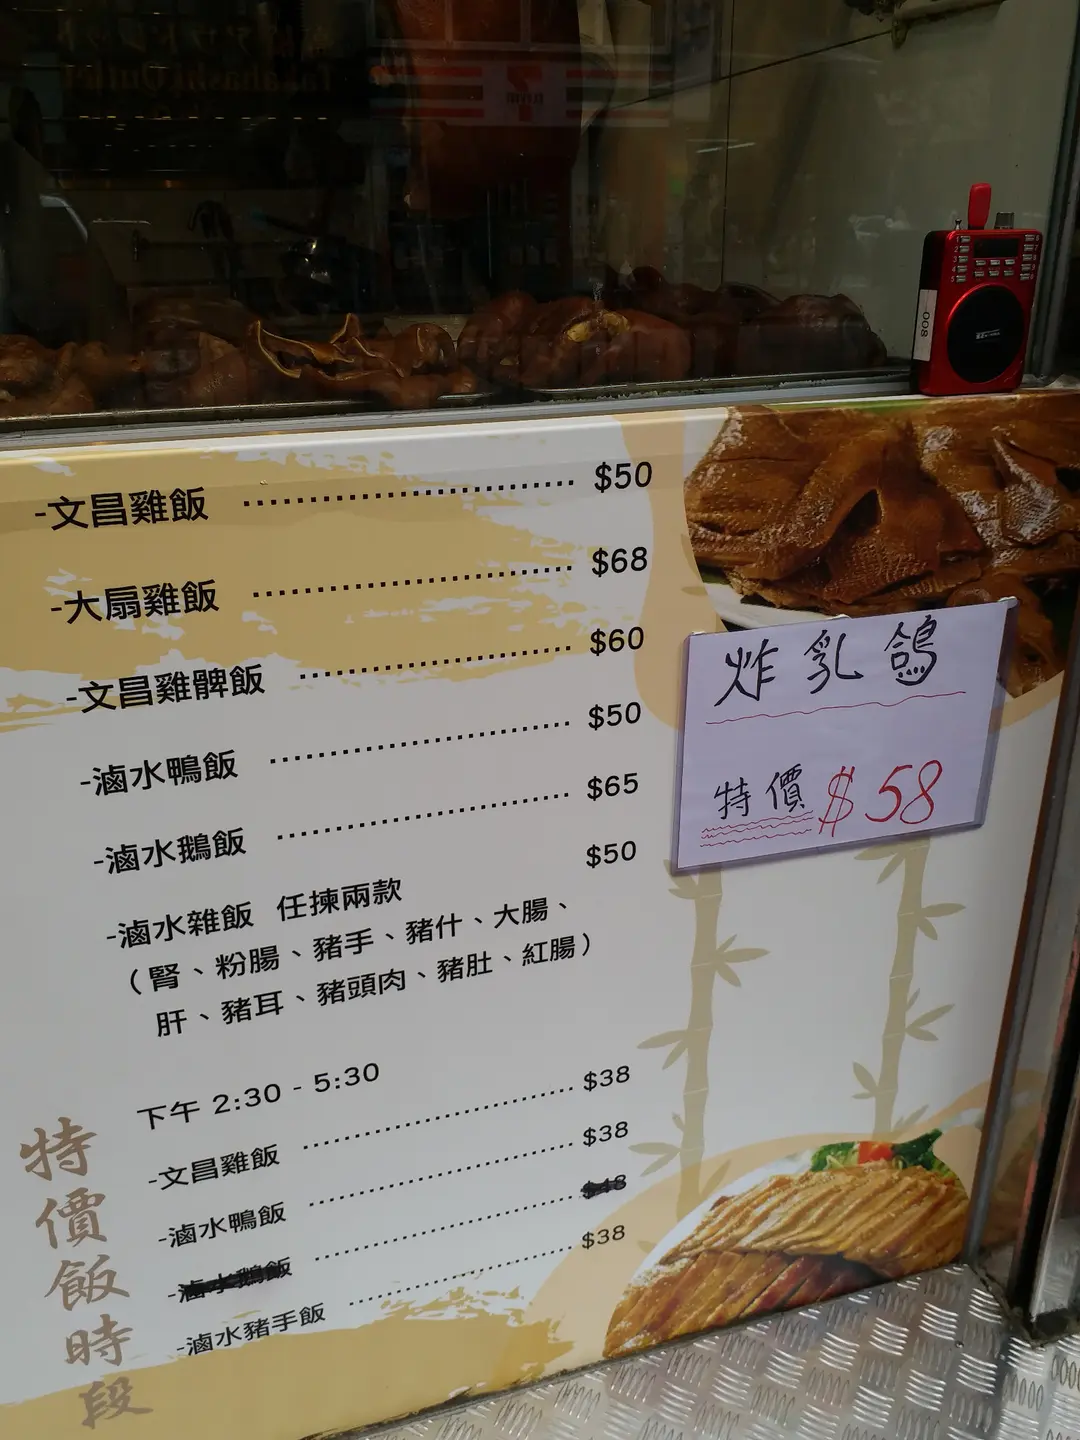 Takahashi Outlet
-008
-文昌雞飯 $50
-大扇雞飯 $68
-文昌雞髀飯 $60
-滷水鴨飯 $50
-滷水鵝飯 $65
-滷水雜飯 任揀兩款 $50
(腎、粉腸、豬手、豬什、大腸、
肝、豬耳、豬頭肉、豬肚、紅腸)
炸乳鴿
特價 $58
特價飯時段
下午 2:30 - 5:30
-文昌雞飯 $38
-滷水鴨飯 $38
-滷水鵝飯 $48
-滷水豬手飯 $38